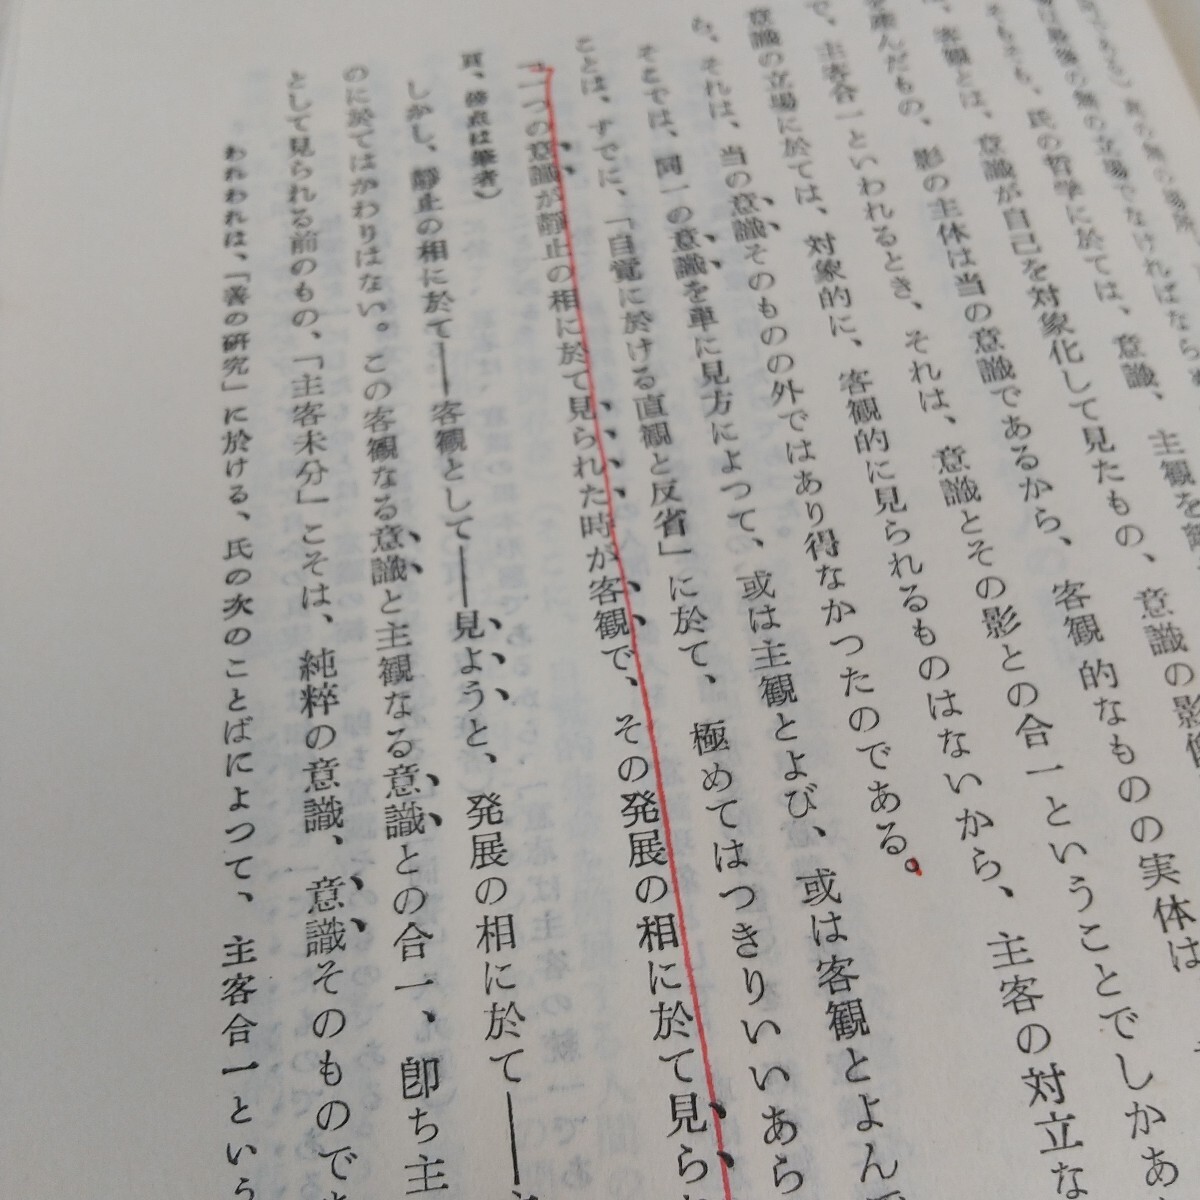 そもそも、氏の哲学に於ては、意識、主観を
客観とは、意識が自己を対象化して見たもの、意識の影像
産んだもの、影の主体は当の意識であるから、客観的なものの実体は
で、主客合一といわれるとき、それは、意識とその影との合一ということでしかあ
意識の立場に於ては、対象的に、客観的に見られるものはないから、主客の対立な
も、それは、当の意識そのものの外ではあり得なかつたのである。
そとでは、同一の意識を単に見方によつて、或は主観とよび、或は客観とよんで
ことは、すでに、「自覚に於ける直観と反省」に於て、極めてはつきりいいあら
「一つの意識が靜止の相に於て見られた時が客観で、その発展の相に於て見ら
頁、傍点は筆者）
しかし、靜止の相に於て――客観として――見ようと、発展の相に於て――
のに於てはかわりはない。この客観なる意識と主観なる意識との合一、卽ち主
として見られる前のもの、「主客未分」こそは、純粋の意識、意識そのもので
われわれは、「善の研究」に於ける、氏の次のことばによつて、主客合一という